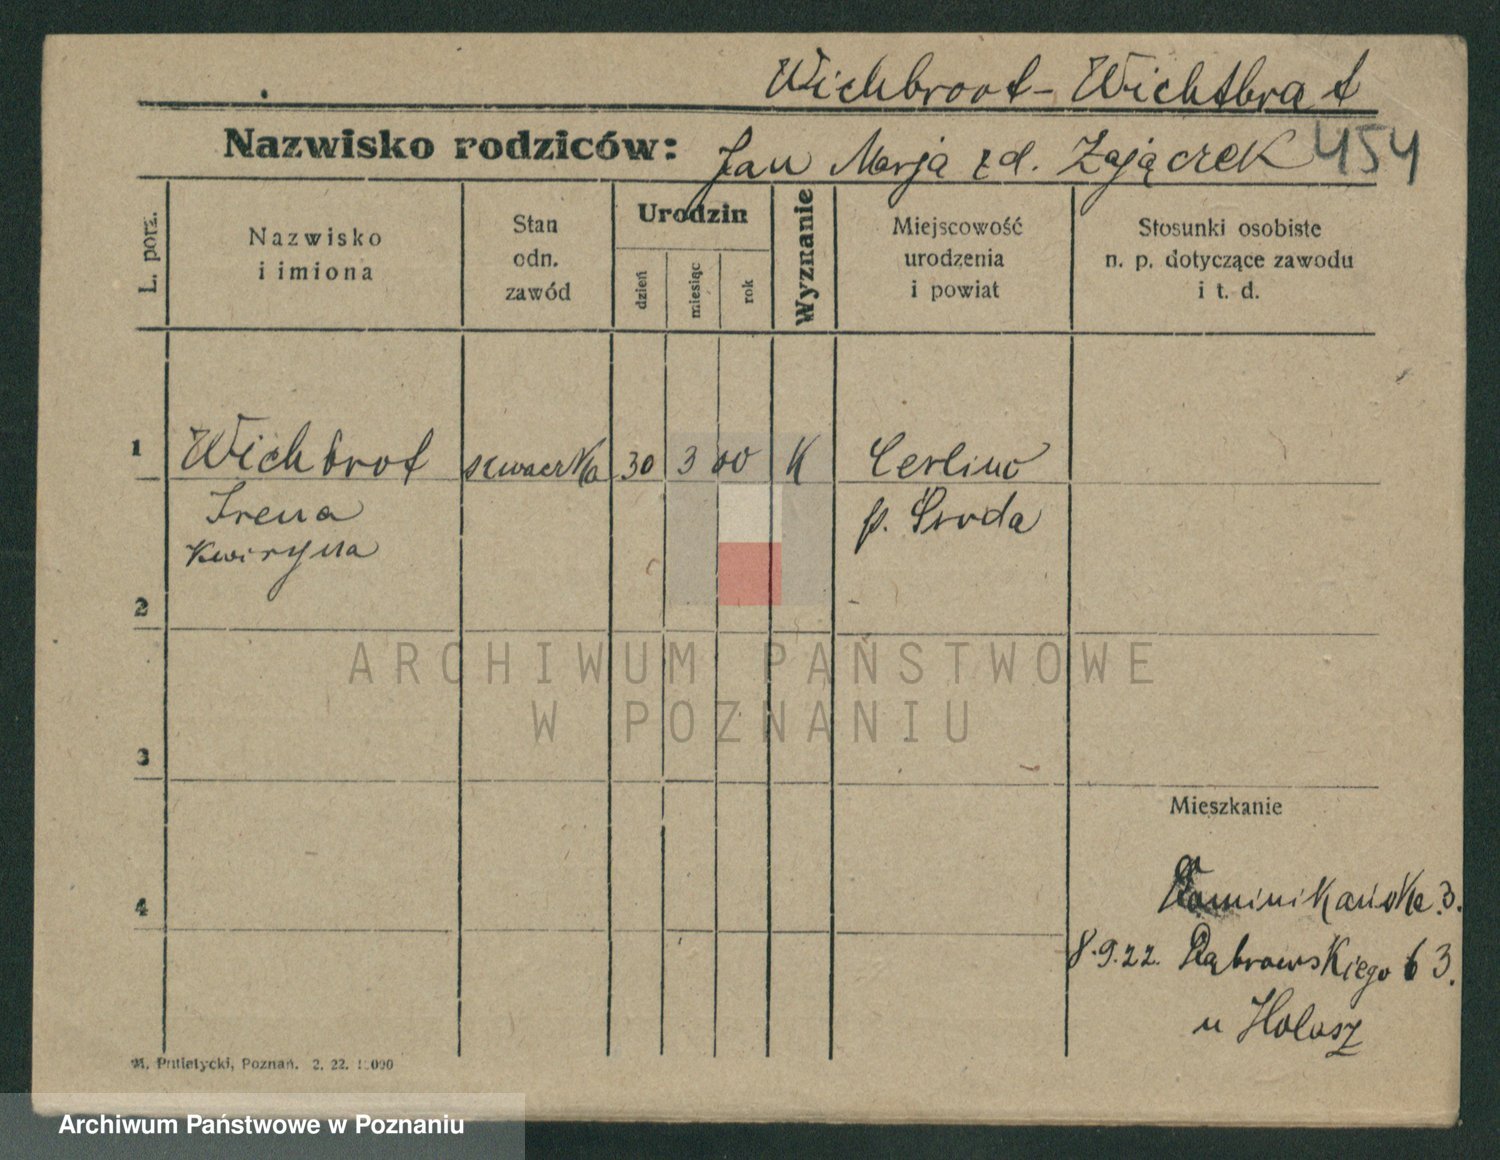 Wichbroot - Wichtbrat
Nazwisko rodziców: Jan Marja zd. Zajączek 454
L. porz.
Nazwisko
i imiona
Stan
odn.
zawód
Urodzin
dzień
miesiąc
rok
Wyznanie
Miejscowość
urodzenia
i powiat
Stosunki osobiste
n. p. dotyczące zawodu
i t. d.
1 Wichbrot szwaczka 30 3 00 K
Irena
Kwiryna
p. Środa
2
3
4
Mieszkanie
Dominikańska 3.
8.9.22. Dąbrowskiego 63.
u Holasz
Poznań. 2. 22.
ARCHIWUM PAŃSTWOWE
W POZNANIU
Archiwum Państwowe w Poznaniu